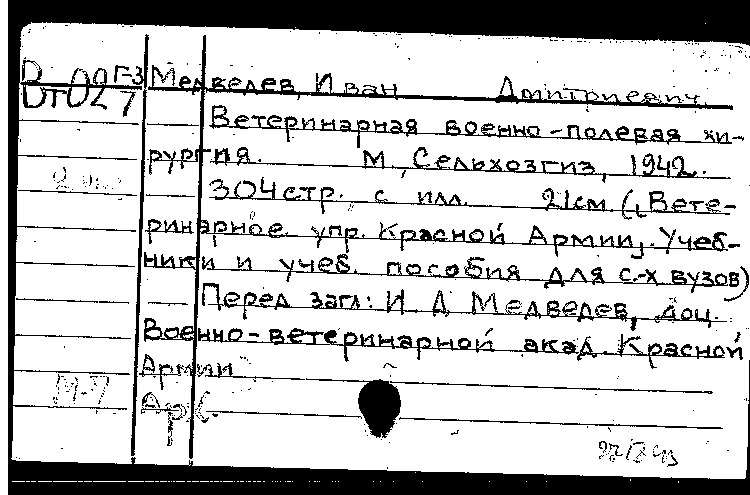 Вт02 Г-3/7 Медведев, Иван Дмитриевич.
Ветеринарная военно-полевая хи-
рургия. М., Сельхозгиз, 1942.
304 стр. с илл. 21 см. (Вете-
ринарное упр. Красной Армии. Учеб-
ники и учеб. пособия для с.-х вузов)
Перед загл: И Д Медведев, доц.
Военно-ветеринарной акад. Красной
Армии
М-7